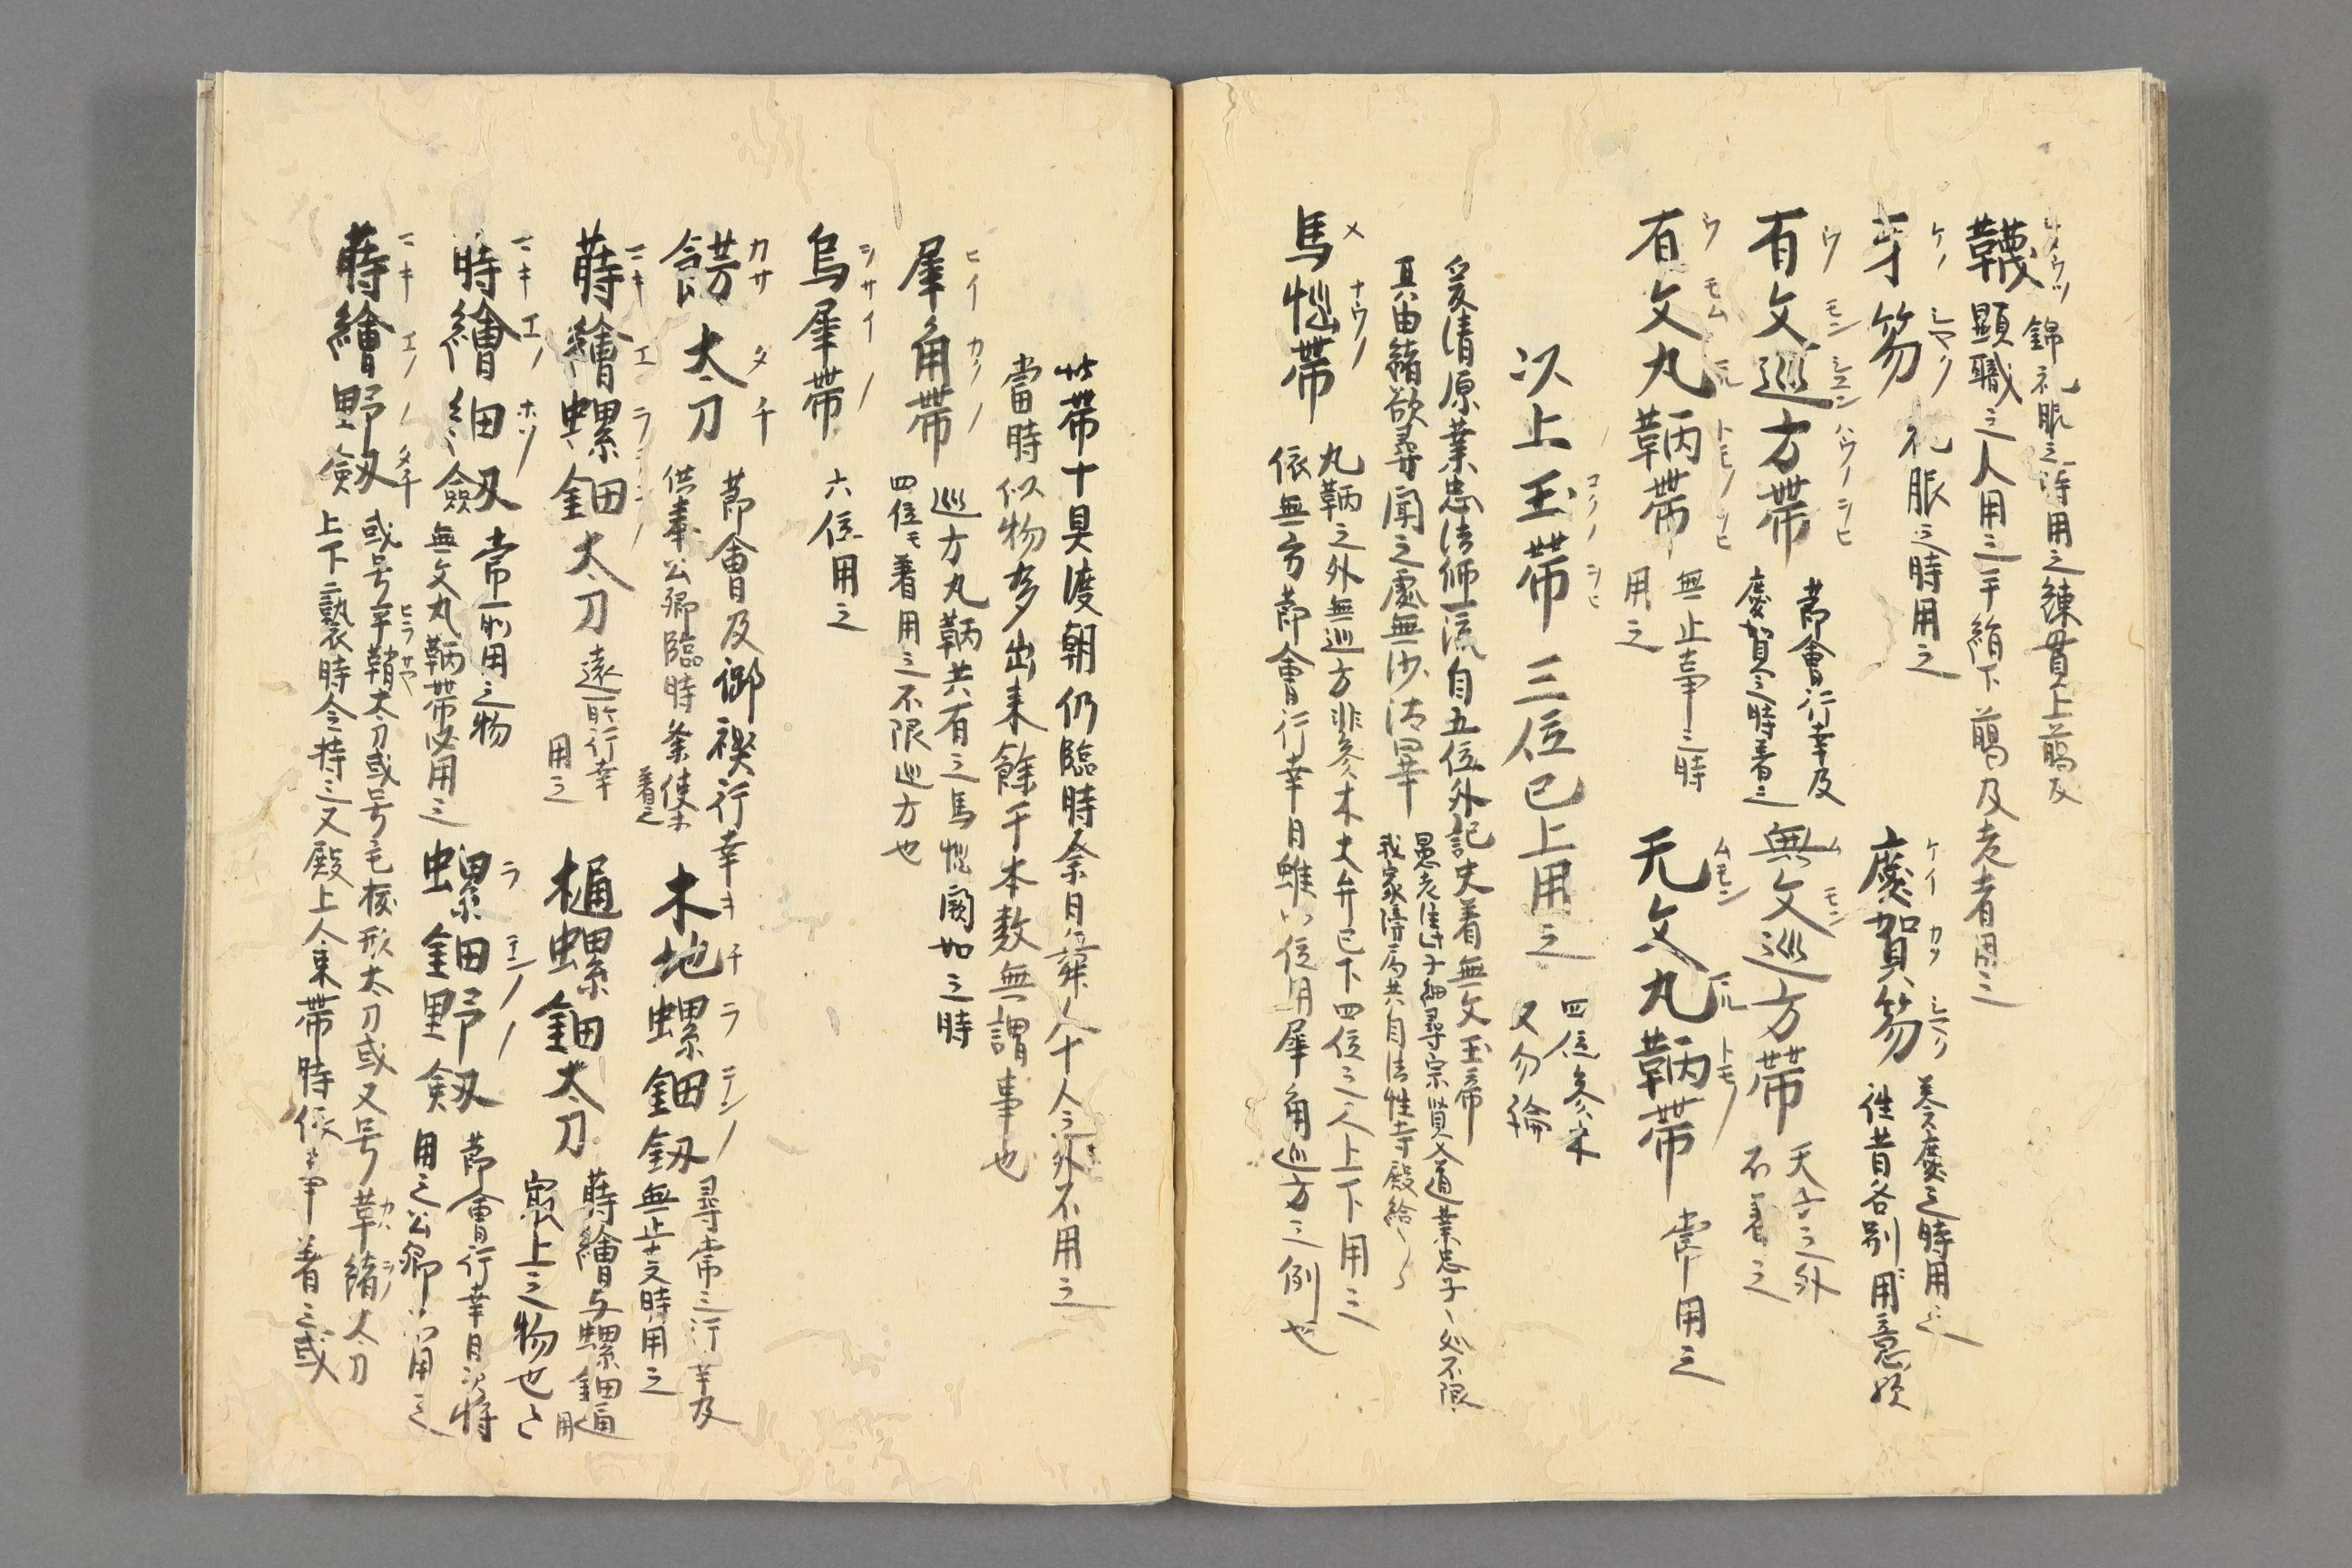 韈 錦礼服之時用之練貫上﨟及
顕職之人用之平絹下﨟及老者用之
牙笏 礼服之時用之
慶賀笏 奏慶之時用之
往昔各別用意歟
有文巡方帯 節會行幸及
慶賀之時着之
無文巡方帯 天子之外
不着之
有文丸鞆帯 無止事之時
用之
无文丸鞆帯 常用之
以上玉帯三位已上用之 四位参木
又勿論
爰清原業忠法師一流自五位外記史着無文玉帯
其由緒欲尋聞之處無沙汰畢
馬悩帯 丸鞆之外無巡方非参木大弁已下四位之人上下用之
依無方節會行幸日雖六位用犀角巡方之例也
此帯十具渡朝仍臨時祭日舞人十人之外不用之
當時似物多出来餘千本数無謂事也
犀角帯 巡方丸鞆共有之馬悩闕如之時
四位モ着用之不限巡方也
烏犀帯 六位用之
餝太刀 節會及御禊行幸
供奉公卿臨時祭使木
着之
木地螺鈿釼 尋常之行幸及
無止事時用之
蒔繪螺鈿太刀 遠所行幸
用之
樋螺鈿太刀 蒔繪与螺鈿通用
最上之物也
蒔繪細釼 常所用之物
無文丸鞆帯必用之
螺鈿野釼 節會行幸日次将
用之公卿以用之
蒔繪野釼 或号平鞘太刀或号毛抜形太刀或又号革緒太刀
上下褻時令持之又殿上人束帯時依事着之或